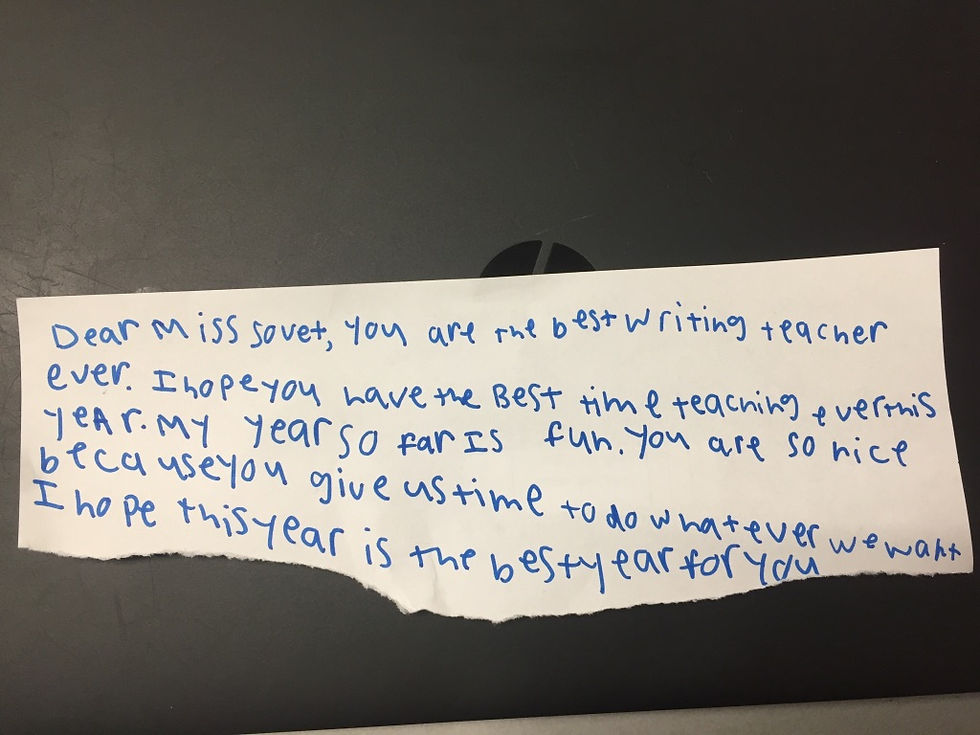 Dear Miss Sovet, you are the best writing teacher
ever. I hope you have the Best time teaching ever this
yeAr. My year so far Is fun. you are so nice
because you give us time to do whatever we want
I hope this year is the best year for you